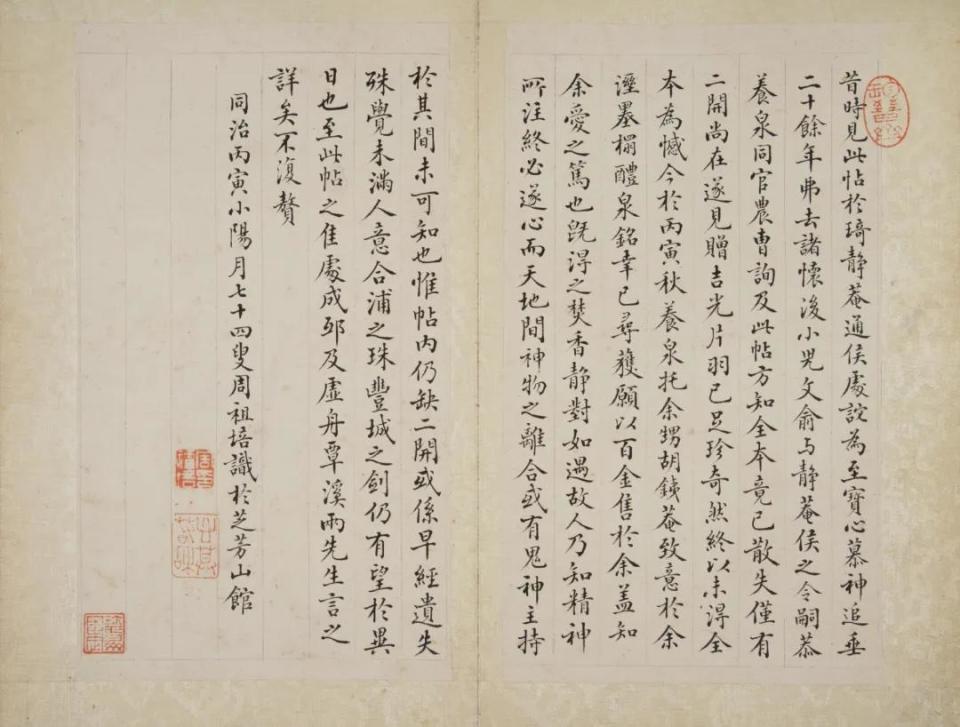 昔時見此帖於琦静菴通侯處詫為至寶心慕神追垂
二十餘年弗去諸懷後小兒文俞与静菴侯之令嗣恭
養泉同官農曹詢及此帖方知全本竟已散失僅有
二開尚在遂見贈吉光片羽已足珍奇然終以未淂全
本為憾今於丙寅秋養泉托余甥胡銕菴致意於余
溼墨搨醴泉銘幸已尋獲願以百金售於余盖知
余愛之篤也既淂之焚香静對如遇故人乃知精神
所注終必遂心而天地間神物之離合或有鬼神主持
於其間未可知也惟帖内仍缺二開或係早經遺失
殊覺未滿人意合浦之珠豐城之劍仍有望於異
日也至此帖之佳處成邸及虚舟覃溪兩先生言之
詳矣不復贅
同治丙寅小陽月七十四叟周祖培識於芝芳山館